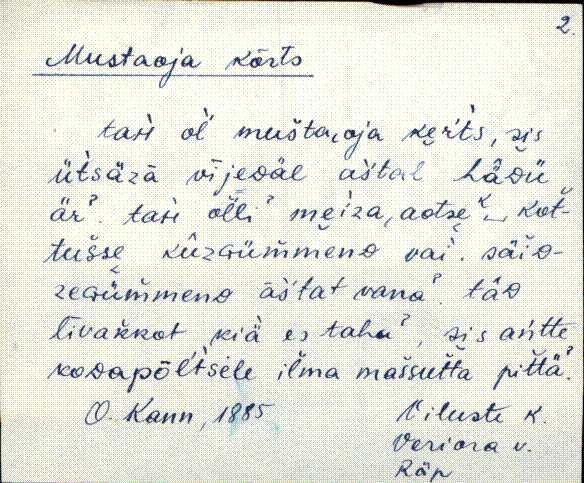 2.
Mustaoja kõrts
tari olʹ mušta͵oja kɛ̮rts, sis
ütsäzä vījedäl aštal hädü
ärˀ. tari õlliˀ meiza, aotse kot-
tušse kūzɢüm̆meno vai. säio-
zeɢüm̆meno āštat vanaˀ. tāo
līvakkot kiä es tahaˀ, sis antte
koᴅapõĺtsele ilma maššutta pittäˀ.
O. Kann, 1885
Viluste k.
Veriora v.
Räp